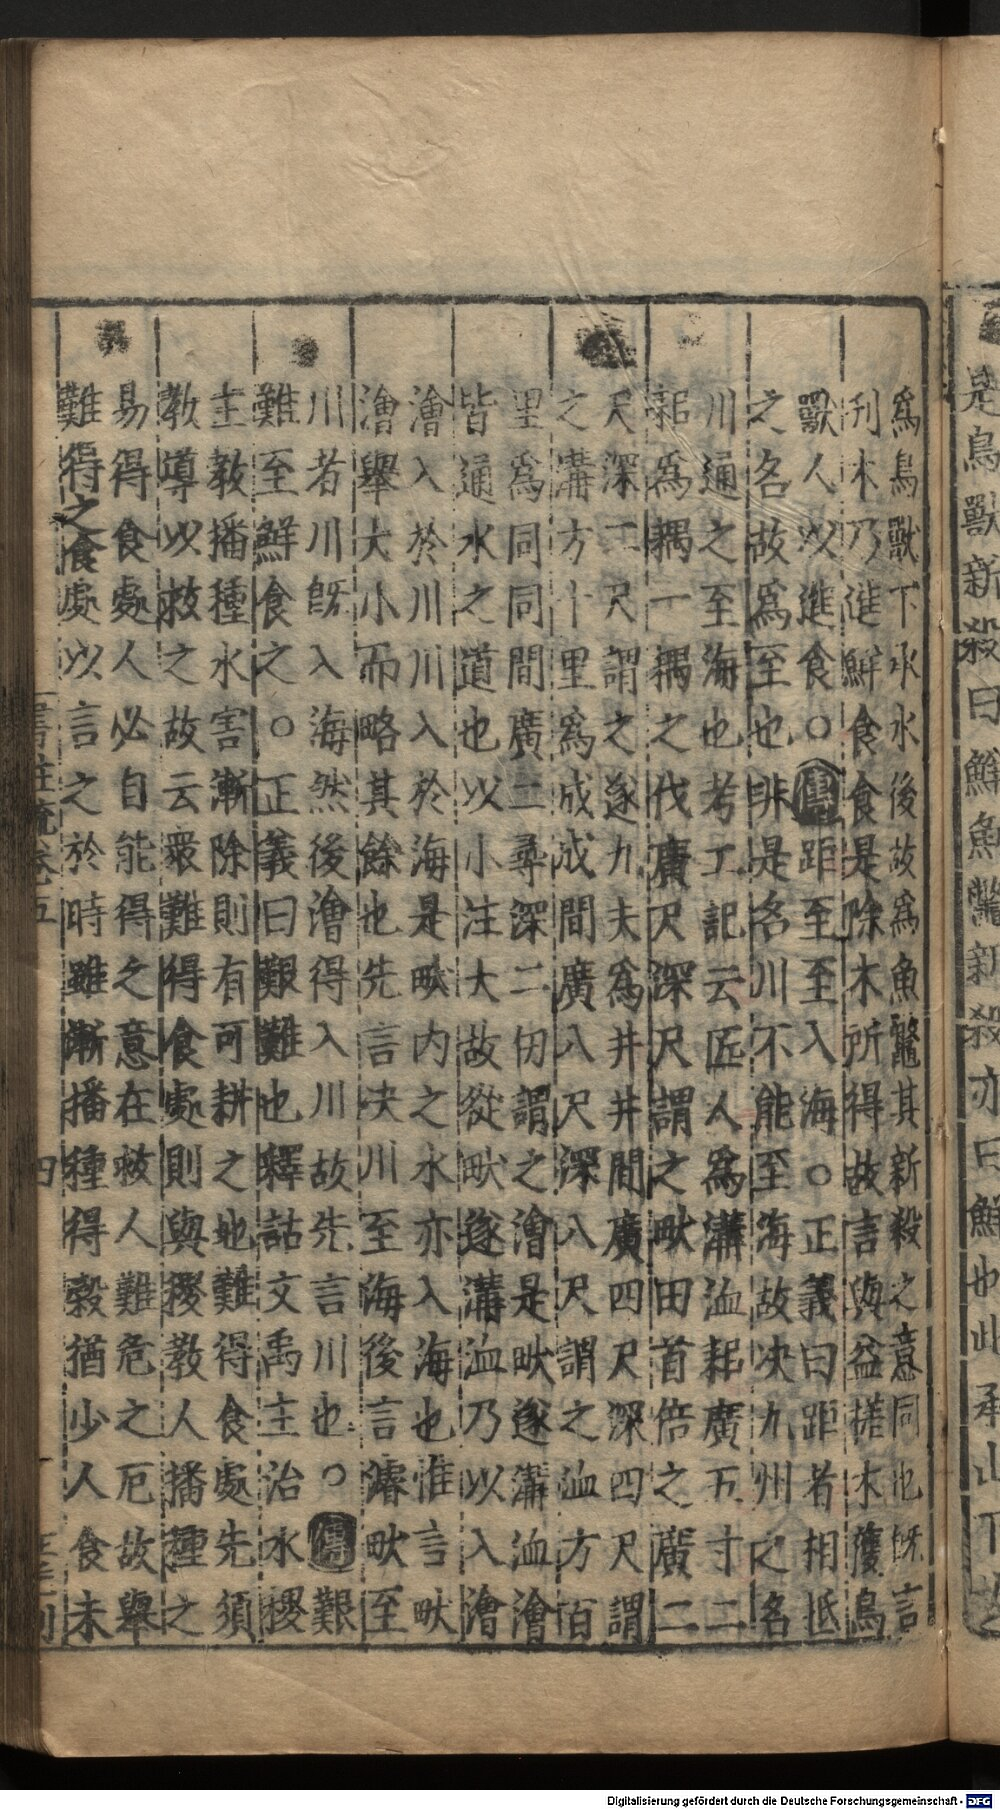 是鳥獸新殺曰鮮魚鱉新殺亦曰鮮也此承山下
爲鳥獸下承水後故爲魚鼈其新殺之意同也既言
刋木乃進鮮食食是除木所得故言與益槎木獲鳥
獸人以進食○傳距至至入海○正義曰距者相抵
之名故爲至也非是名川不能至海故决九州之名
川通之至海也考工記云匠人爲溝洫耜廣五寸二
耜爲耦一耦之伐廣尺深尺謂之畎田首倍之廣二
尺深二尺謂之遂九夫爲井井間廣四尺深四尺謂
之溝方十里爲成成間廣八尺深八尺謂之洫方百
里爲同同間廣二尋深二仞謂之澮是畎遂溝洫澮
皆通水之道也以小注大故從畎遂溝洫乃以入澮
澮入於川川入於海是畎内之水亦入海也惟言畎
澮舉大小而略其餘也先言决川至海後言濬畎至
川者川旣入海然後澮得入川故先言川也○傳艱
難至鮮食之○正義曰艱難也釋詁文禹主治水稷
主教播種水害漸除則有可耕之地難得食處先須
教導以救之故云衆難得食處則與稷教人播種之
易得食處人必自能得之意在救人難危之厄故舉
難得之食處以言之於時雖漸播種得穀猶少人食未
書註疏卷五 四
Digitalisierung gefördert durch die Deutsche Forschungsgemeinschaft - DFG